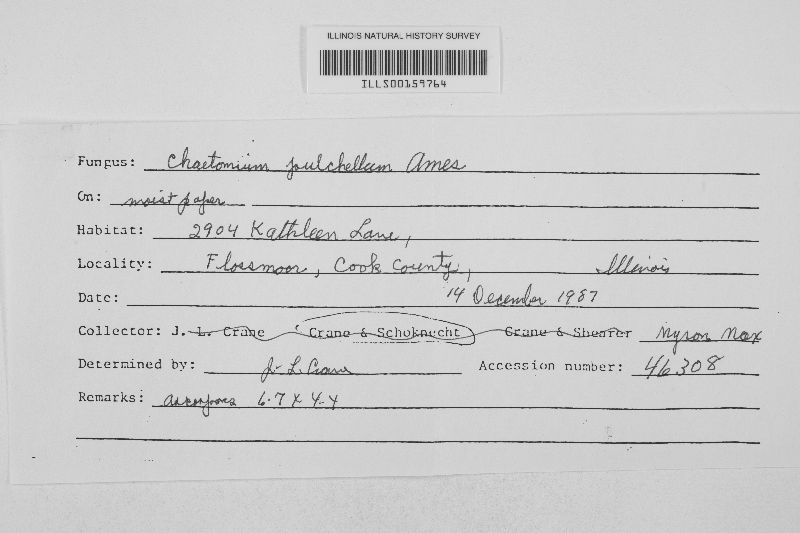 ILLINOIS NATURAL HISTORY SURVEY
ILLS00159764
Fungus: Chaetomium pulchellum Ames
On: moist paper
Habitat: 2904 Kathleen Lane,
Locality: Flossmoor, Cook County, Illinois
Date: 14 December 1987
Collector: J. L. Crane Crane & Schoknecht Crane & Shearer Myron Max
Determined by: J. L. Crane Accession number: 46308
Remarks: Ascospores 6.7 X 4.4